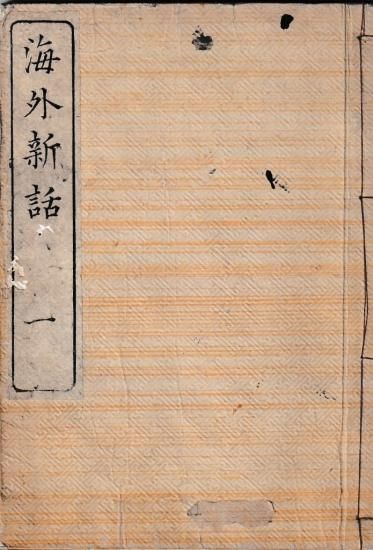 海外新話
一